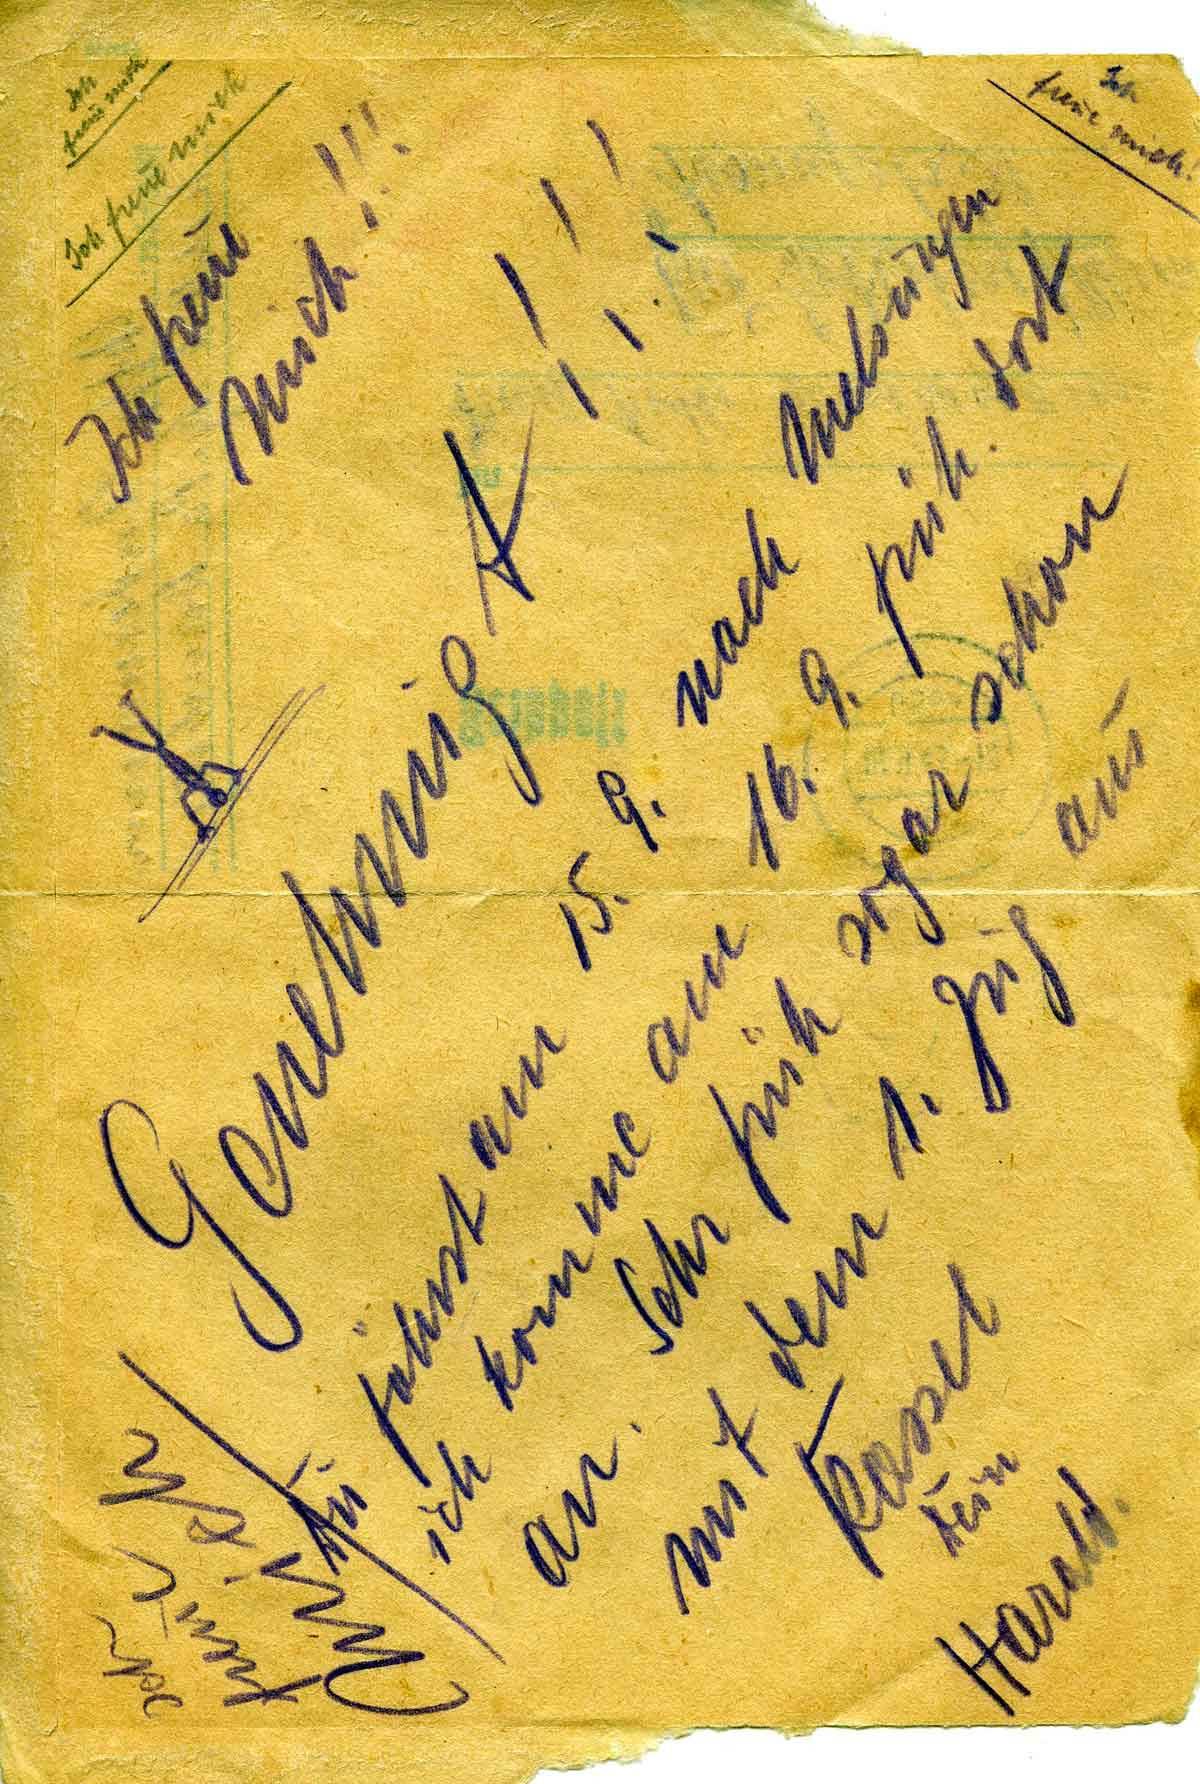 Ich
freue mich
Ich freue mich
Ich
freue mich!
Ich freue
mich!!!
Genehmigt!!!
Du fährst am 15. 9. nach Melsungen
ich komme am 16. 9. früh dort
an. Sehr früh sogar schon
mit dem 1. Zug aus
Kassel
Dein
Harald.
Ich
freue